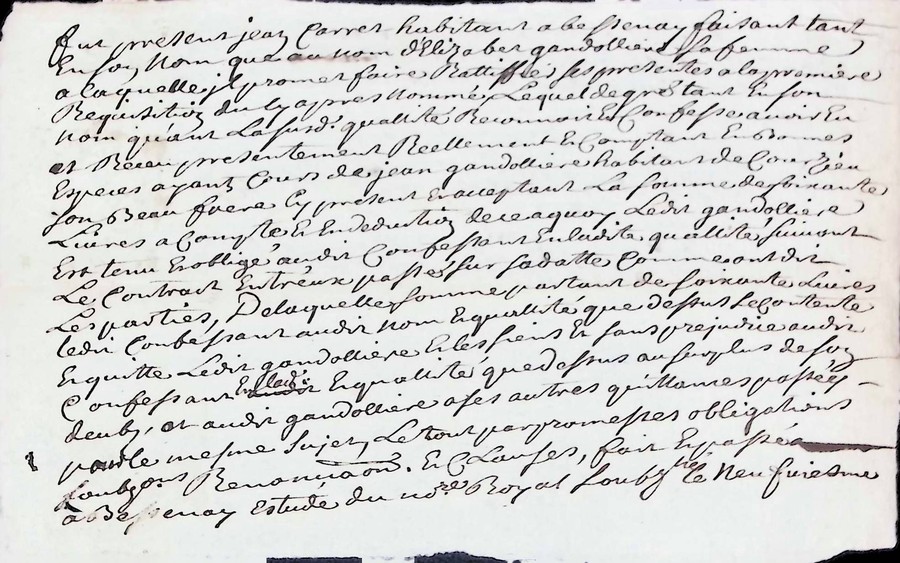 fut present jean Carret habitant a bessenay faisant tant
En son Nom que au nom d'Elizabet gandolliere sa femme
a laquelle il promet faire Rattiffié ses presentes a la premiere
Requisition du cy apres nommé, Lequel de gré tant En son
nom qu'ant La susde. quallité Reconnoit Et Confesse avoir Eu
et Receu presentement Reellement Et Comptant En bonnes
Especes ayant Cours de jean gandolliere habitant de Courzieu
son Beau frere Cy present Et acceptant La somme de soixante
Livres a Compte Et En deduction de ce a quoy Ledit gandolliere
Est tenu Et obligé audit Confessant En ladite quallité suivant
Le Contrat Entr'eux passé sur sa datte Comme ont dit
Les parties, De laquelle somme partant de soixante Livres
ledit Confessant audit nom Et quallité que dessus se Contente
Et quitte Ledit gandolliere Et les siens Et sans prejudice audit
Confessant En lade. Et quallité que dessus au surplus de son
deub, et audit gandolliere a ses autres quittances passées
pour le mesme sujet, Le tout par promesses obligations
soubz ons Renonciaons. Et Clauses, fait Et passé a
a Bessenay Estude du nore. Royal soubz le Neufviesme